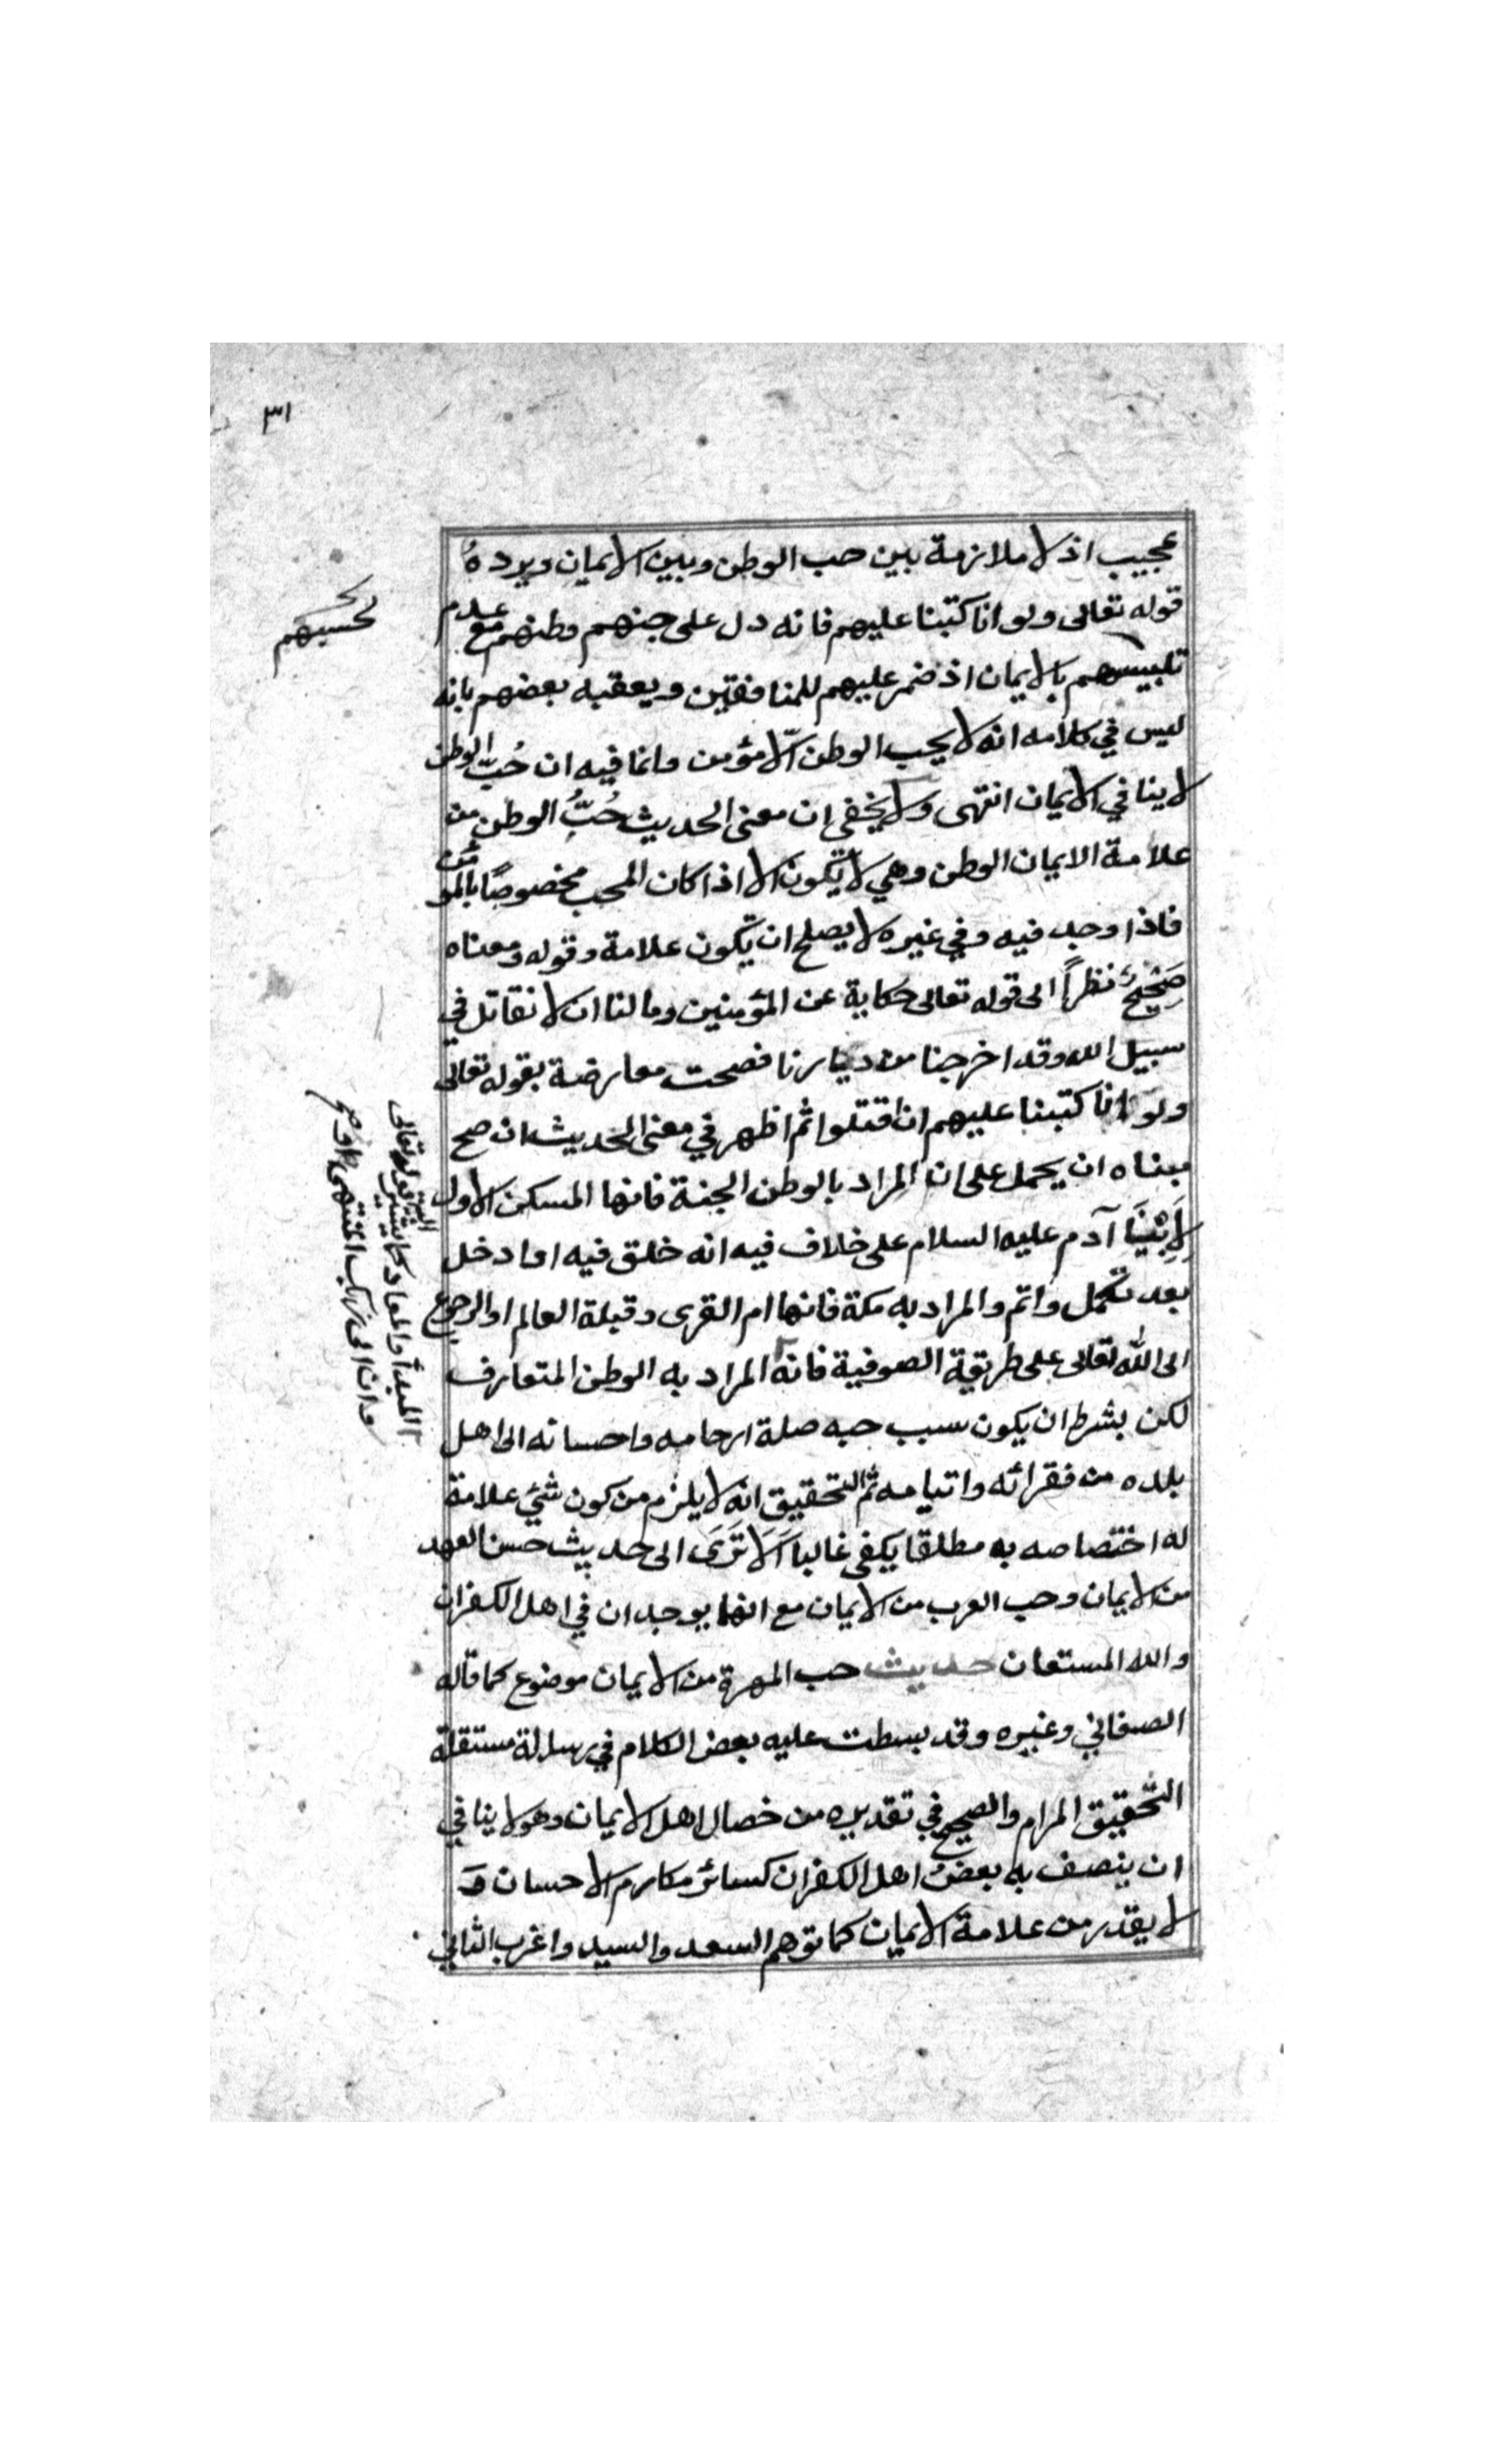 ٣١
عجيب اذ لا ملازمة بين حب الوطن وبين الايمان ويرده
قوله تعالى ولو انا كتبنا عليهم فانه دل على حبهم وطنهم مع عدم
تلبيسهم بالايمان اذ ضمر عليهم للمنافقين ويعقبه بعضهم بانه
ليس في كلامه انه لا يحب الوطن الّا مؤمن وانما فيه ان حُبّ الوطن
لا ينافي الايمان انتهى ولا يخفى ان معنى الحديث حُبُّ الوطن من
علامة الايمان الوطن وهي لا تكون الا اذا كان المحب مخصوصًا بالمؤمن
فاذا وجد فيه وفي غيره لا يصلح ان تكون علامة وقوله ومعناه
صَحِيحٌ نظرًا الى قوله تعالى حكاية عن المؤمنين وما لنا ان لا نقاتل في
سبيل الله وقد اخرجنا من ديارنا فصحت معارضة بقوله تعالى
ولو انا كتبنا عليهم ان اقتلوا ثم اظهر في معنى الحديث ان صح
مبناه ان يحمل على ان المراد بالوطن الجنة فانها المسكن الاول
لِاَبِيْنَا آدم عليه السلام على خلاف فيه انه خلق فيه او ادخل
بعد تكمل واتم والمراد به مكة فانها ام القرى وقبلة العالم او الرجوع
الى الله تعالى على طريقة الصوفية فانه المراد به الوطن المتعارف
لكن بشرط ان يكون سبب حبه صلة ارحامه واحسانه الى اهل
بلده من فقرائه وايتامه ثم التحقيق انه لا يلزم من كون شئ علامة
له اختصاصه به مطلقا يكفى غالبا اَلَا تَرَى الى حديث حسن العهد
من الايمان وحب العرب من الايمان مع انهما يوجدان في اهل الكفران
والله المستعان حديث حب الهرة من الايمان موضوع كما قاله
الصغاني وغيره وقد بسطت عليه بعض الكلام في رسالة مستقلة
التحقيق المرام والصحيح في تقديره من خصال اهل الايمان وهو لا ينافي
ان يتصف به بعضُ اهل الكفران كسائر مكارم الاحسان وَ
لا يقدر من علامة الايمان كما توهم السعد والسيد واغرب الثاني
لحبهم
المبدأ والمعاد كما يشير اليه قوله تعالى
وان الى ربك المنتهى او صح